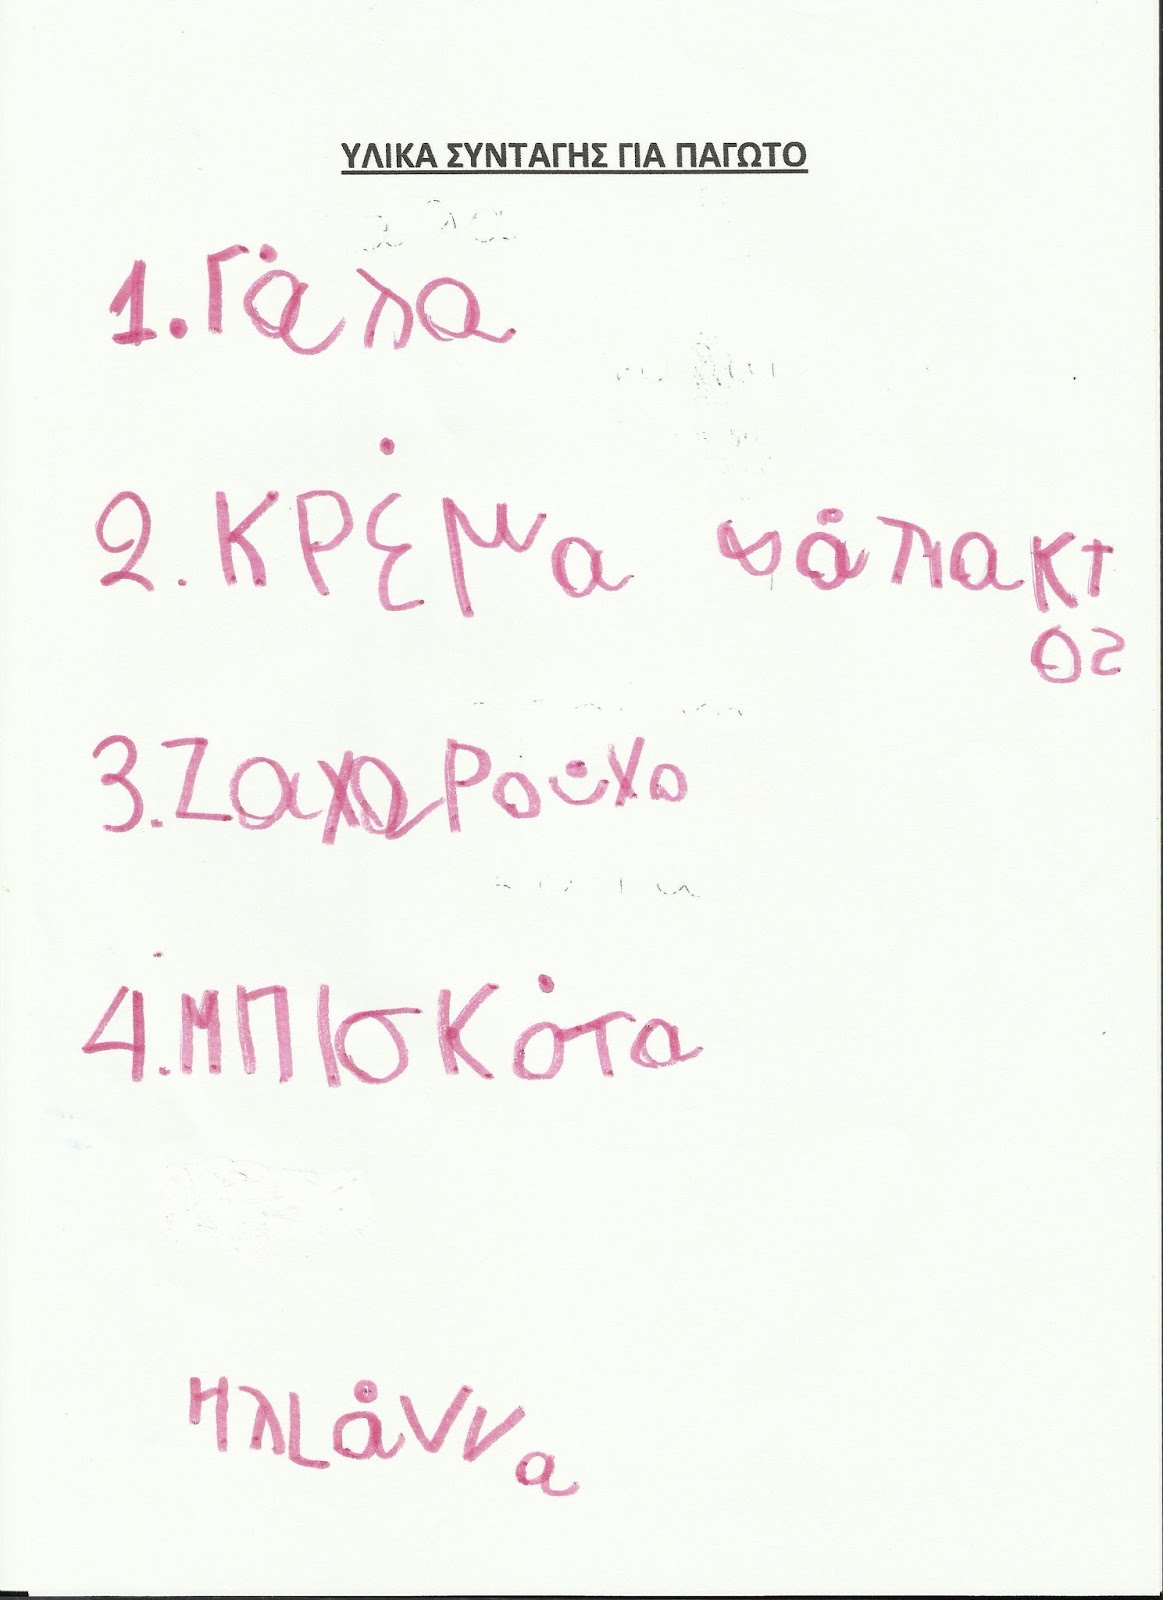 ΥΛΙΚΑ ΣΥΝΤΑΓΗΣ ΓΙΑ ΠΑΓΩΤΟ
1. Γάλα
2. ΚΡέμα γάλακτ
ος
3. Ζαχαρούχο
4. ΜΠΙσΚότα
Ηλιάννα